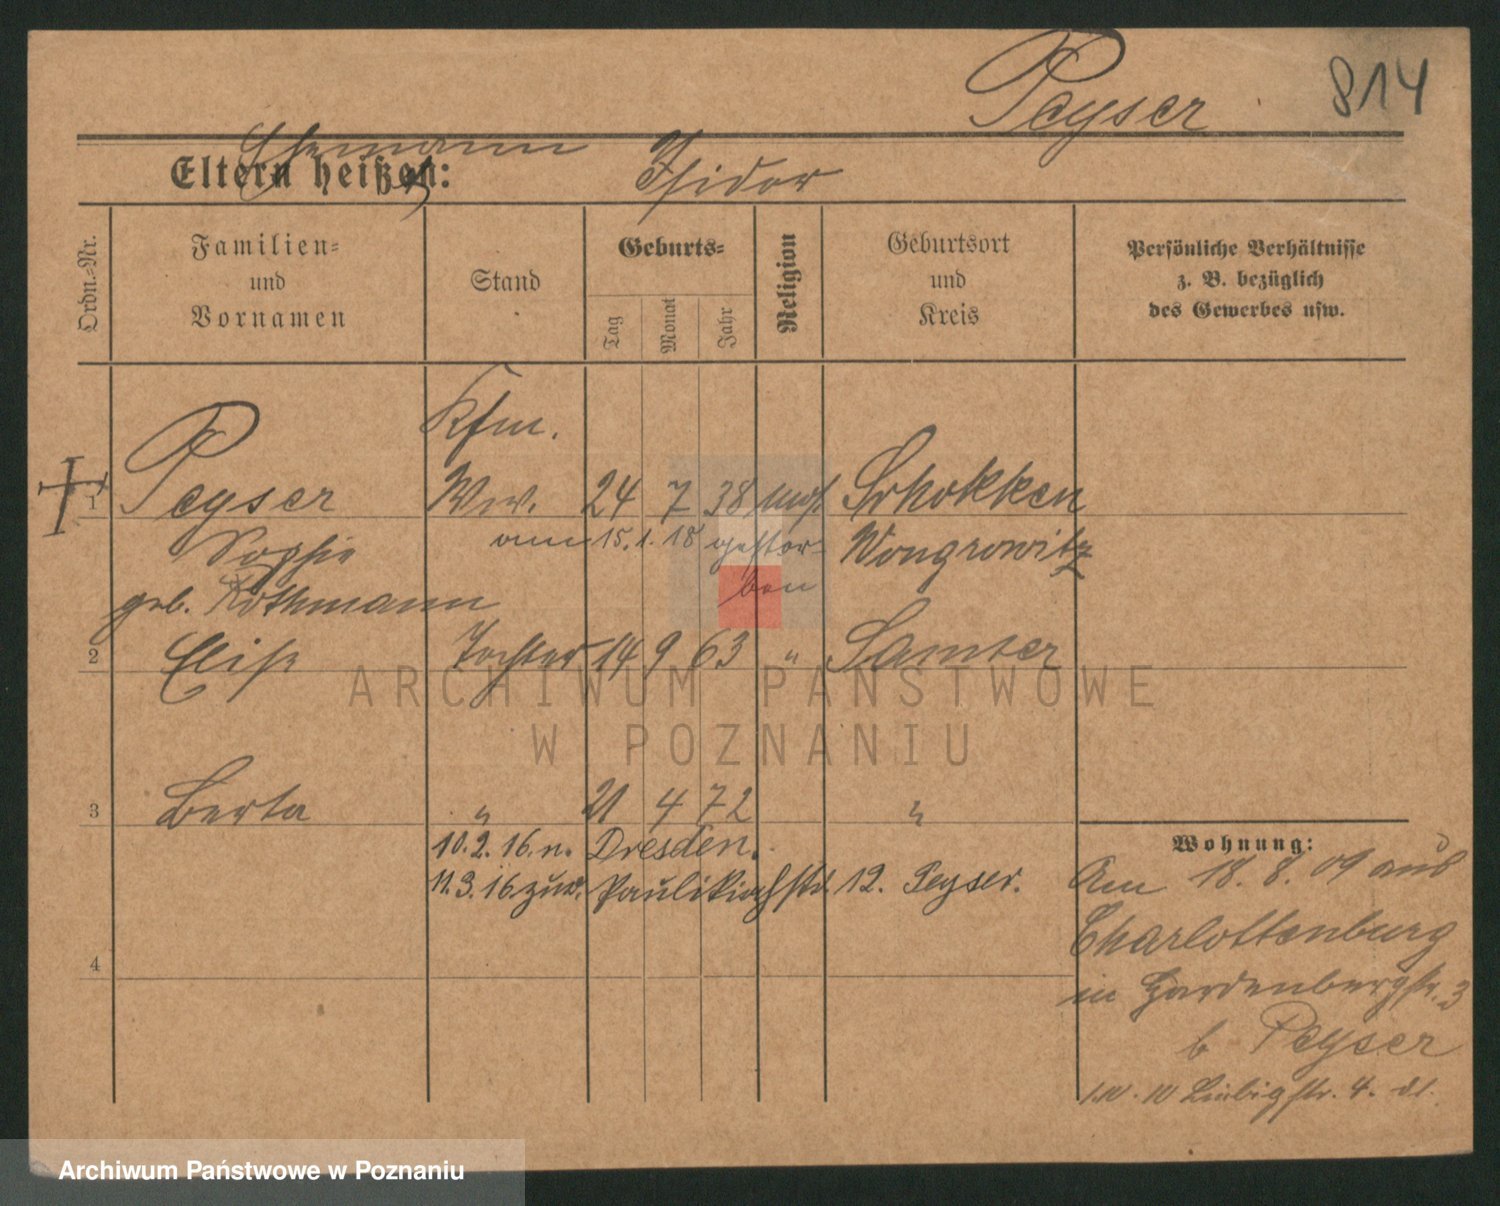 Peyser 814
Ehemann Isidor
Eltern heißen:
Ordn.=Nr.
Familien=
und
Vornamen
Stand
Geburts=
Tag
Monat
Jahr
Religion
Geburtsort
und
Kreis
Persönliche Verhältnisse
z. B. bezüglich
des Gewerbes usw.
Kfm.
1 Peyser Ww. 24 7 38 mos. Schokken
Sophie am 15. 1. 18 gestor- Wongrowitz
geb. Rothmann ben
2 Elise Tochter 14 9 63 " Samter
3 Berta " 21 4 72 "
10.2.16. n. Dresden.
11.3.16 zur. Paulikirchstr. 12. Peyser.
4
Wohnung:
Am 18. 8. 09 aus
Charlottenburg
in Hardenbergstr. 3
b Peyser
1.10.10 Liebigstr. 4.
ARCHIWUM PAŃSTWOWE
W POZNANIU
Archiwum Państwowe w Poznaniu